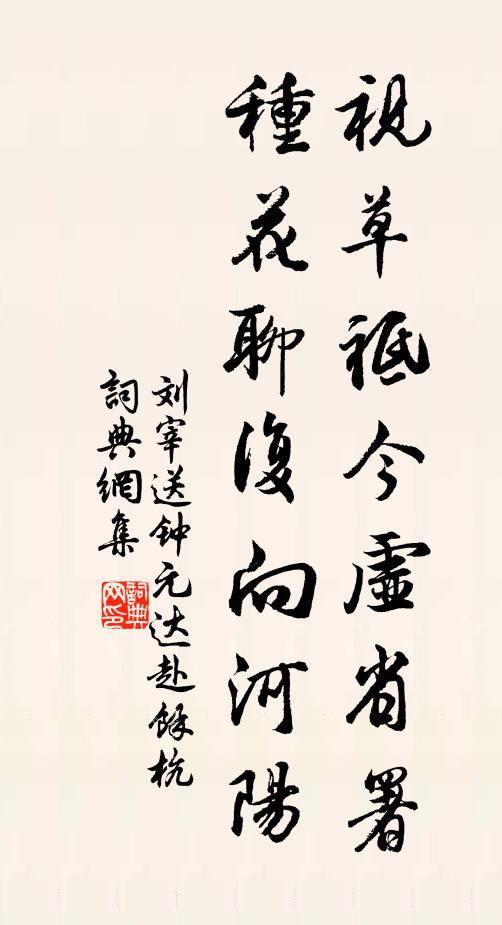 視草祗今虛省署
種花聊復向河陽
刘宰送钟元达赴餘杭
詞典網集
詞典
网印